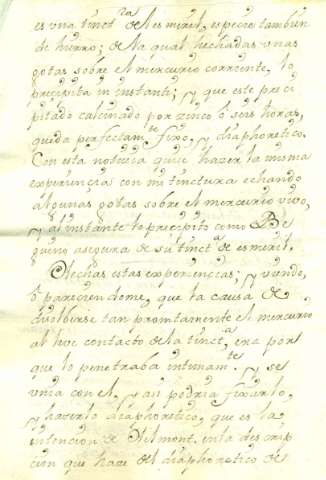 es vna tinct.ra de el esmeril, especie tambien
de hierro; de la qual hechadas vnas
gotas sobre el mercurio corriente, lo
precipita in instante; y que este preci
pitado calcinado por zinco ò seis horas,
queda perfectam.te fixo, y diaphoretico.
Con esta noticia quise hazer la misma
experiencia con mi tinctura echando
algunas gotas sobre el mercurio vivo,
y al instante lo precipitò como Be
guino asegura de su tinct.a de esmeril.
Hechas estas experiencias; y viendo,
ò pareciendome, que la causa de
disolberse tan promtamente el mercurio
al contacto de la tinct.a era por
que lo penetraba intimam.te y se
vnia con el, y an podria fixarlo,
y hazerlo diaphoretico, que es la
intencion de Helmont. en la descrip
cion que haze del diaphoretico de